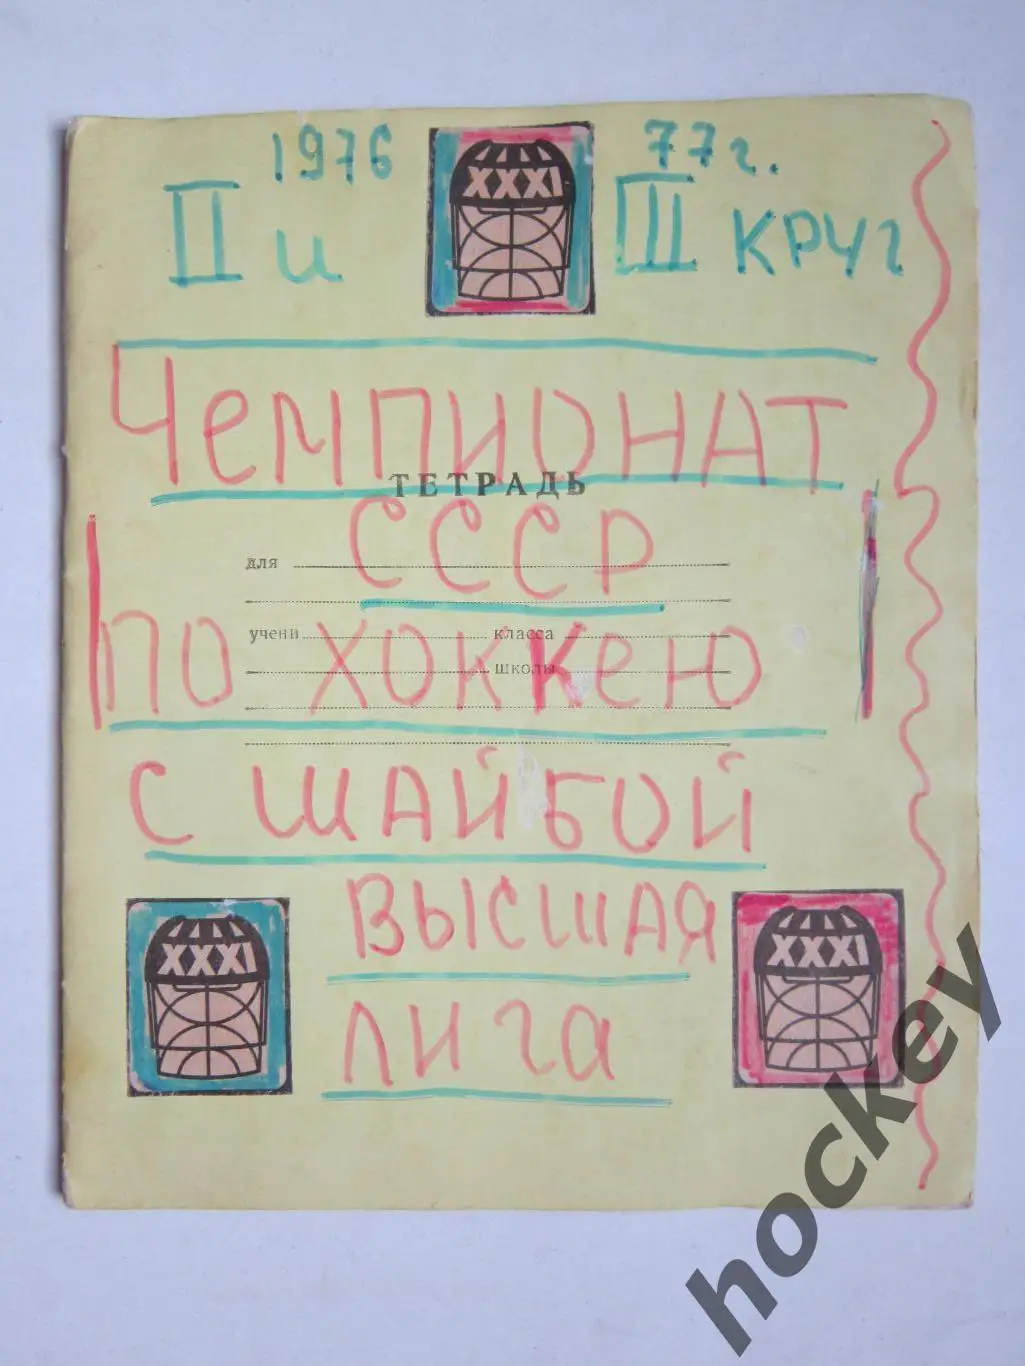 1976 XXXI 77г.
II и III круг
Чемпионат
ТЕТРАДЬ
СССР
для
по хоккею
учени класса
школы
с шайбой
высшая
XXXI XXXI
лига
hockey